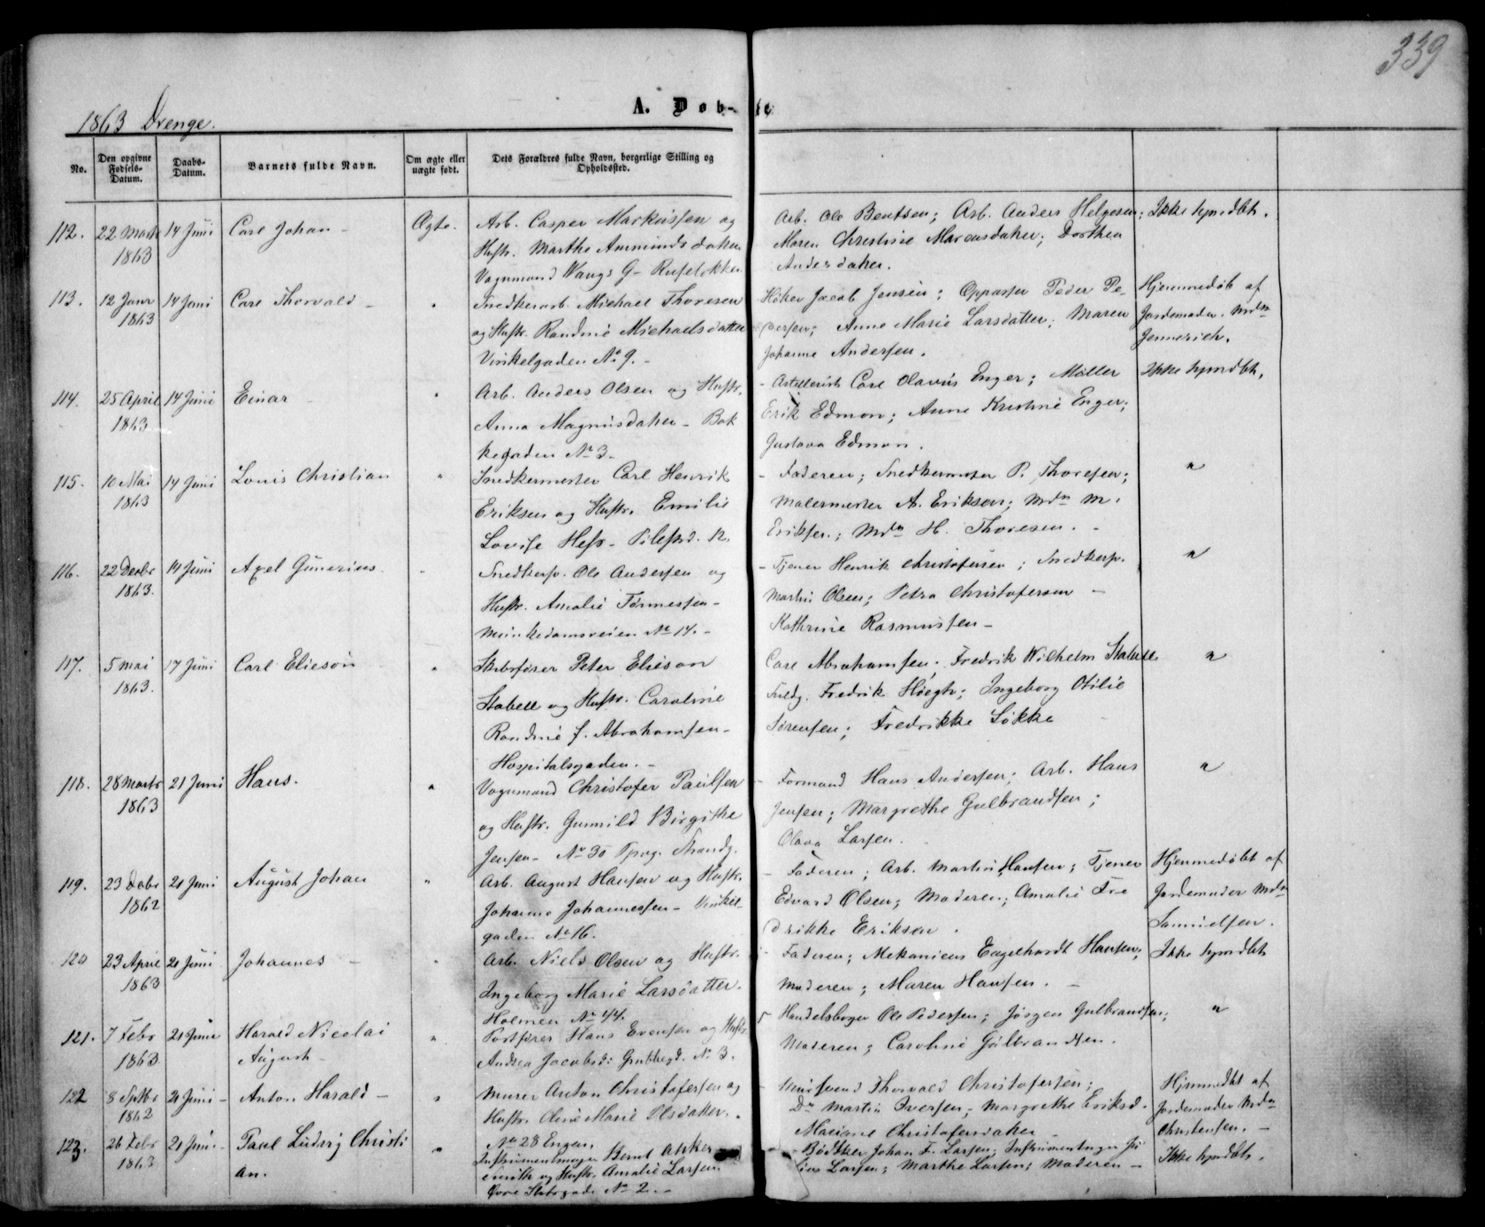 339
A. Døb-te
1863 Drenge.
No.
Den opgivne Fødsels-Datum.
Daabs-Datum.
Barnets fulde Navn.
Om ægte eller uægte født.
Dets Forældres fulde Navn, borgerlige Stilling og Opholdssted.
112. 22 Marts 14 Juni Carl Johan - Ægte. Arb. Casper Markussen og Arb. Ole Bentsen; Arb. Anders Helgesen; Ikke hjmdbt.
1863 Hustr. Marthe Ammundsdatter Maren Christine Marcusdatter; Dorthea
Vognmand Waags G- Ruseløkken Andersdatter.
113. 12 Janr 14 Juni Carl Thorvald - " Snedkerarb. Michael Thoresen Høker Jacob Jensen; Oppasser Peder Pe- Hjemmedøb af
1863 og Hustr. Randine Michaelsdatter dersen; Anne Marie Larsdatter; Maren Jordemoder Mdm
Vinkelgaden No 9. - Johanne Andersen. Jennerich.
114. 25 April 14 Juni Einar - " Arb. Anders Olsen og Hustr. - Artillerist Carl Olavus Enger; Møller Ikke hjmdbt.
1863 Anna Magnusdatter - Bak Erik Edmon; Anne Kristine Enger;
kegaden No 3 - Gustava Edmon.
115. 10 Mai 14 Juni Louis Christian " Snedkermester Carl Henrik - Faderen; Snedkermester P. Thoresen; "
1863 Eriksen og Hustr. Emilie Malermester A. Eriksen; Mdm M.
Lovise Hess - Pilestrd. 12. Eriksen; Mdm H. Thoresen. -
116. 22 Decbr 14 Juni Axel Gunerius " Snedkersv. Ole Andersen og - Tjener Henrik Christofersen; Snedkersv. "
1863. Hustr. Amalie Tørmessen - Martin Olsen; Petra Christofersen -
Munkedamsveien No 14. - Kathrine Rasmussen -
117. 5 Mai 17 Juni Carl Elieson " Skibsfører Peter Elieson Carl Abrahamsen. Fredrik Wilhelm Stabell "
1863. Stabell og Hustr. Caroline Fuldg. Fredrik Høegh; Ingeborg Otilie
Randine f. Abrahamsen - Sørensen; Fredrikke Løkke
Hospitalsgaden. -
118. 28 Marts 21 Juni Hans. " Vognmand Christofer Paulsen - Formand Hans Andersen; Arb. Hans "
1863 og Hustr. Gunnild Birgithe Jensen; Margrethe Gulbrandsen;
Jensen - No 30 Strandg. Olava Larsen.
119. 23 Decbr 21 Juni August Johan " Arb. August Hansen og Hustr. - Faderen; Arb. Martin Hansen; Tjener Hjemmedøbt af
1862 Johanne Johannessen - Vinkel- Edvard Olsen; Moderen; Amalie Fre Jordemoder Mdm
gaden No 16. drikke Eriksen. Samuelsen.
120 23 April 21 Juni Johannes - " Arb. Niels Olsen og Hustr. - Faderen; Mekanicus Engelhardt Hansen; Ikke hjmdbt
1863 Ingeborg Marie Larsdatter. Moderen; Maren Hansen. -
Holmen No 44.
121. 7 Febr 21 Juni Harald Nicolai " Postfører Hans Evensen og Hustr. Handelsborger Ole Pedersen; Jørgen Gulbrandsen; "
1863 August - Andrea Jacobsd: Grubbegd. No 3. Moderen; Caroline Gulbrandsen.
122 8 Septbr 21 Juni - Anton Harald - " Murer Anton Christofersen og - Mursvend Thorvald Christofersen; Hjmmedbt af
1862 Hustr. Oline Marie Olsdatter. Do Martin Iversen; Margrethe Eriksd. Jordemoder Mdm
No 28 Engen. Mariane Christofersdatter Christensen. -
123. 26 Febr 21 Juni - Paul Ludvig Christi " Instrumentmager Bernt - Bødtker Johan F. Larsen; Instrumentmager Ju Ikke hjmdbt.
1863 an. og Hustr. Amalie Larsen lius Larsen; Marthe Larsen; Moderen -
Øvre Slotsgade No 2. -